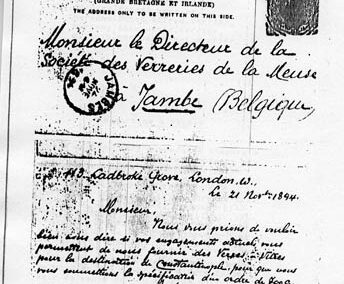 (GRANDE BRETAGNE ET IRLANDE)
THE ADDRESS ONLY TO BE WRITTEN ON THIS SIDE.
Monsieur le Directeur de la
Société des Verreries de la Meuse
JAMBES
à Jambe (Belgique)
113, Ladbroke Grove, London. W.,
Le 21 Novre 1894.
Monsieur,
Nous vous prions de vouloir
bien nous dire si vos engagements actuels vous
permettent de nous fournir des Verres à Vitres
pour la destination de Constantinople, pour que nous
vous soumettions la spécification d'un ordre de